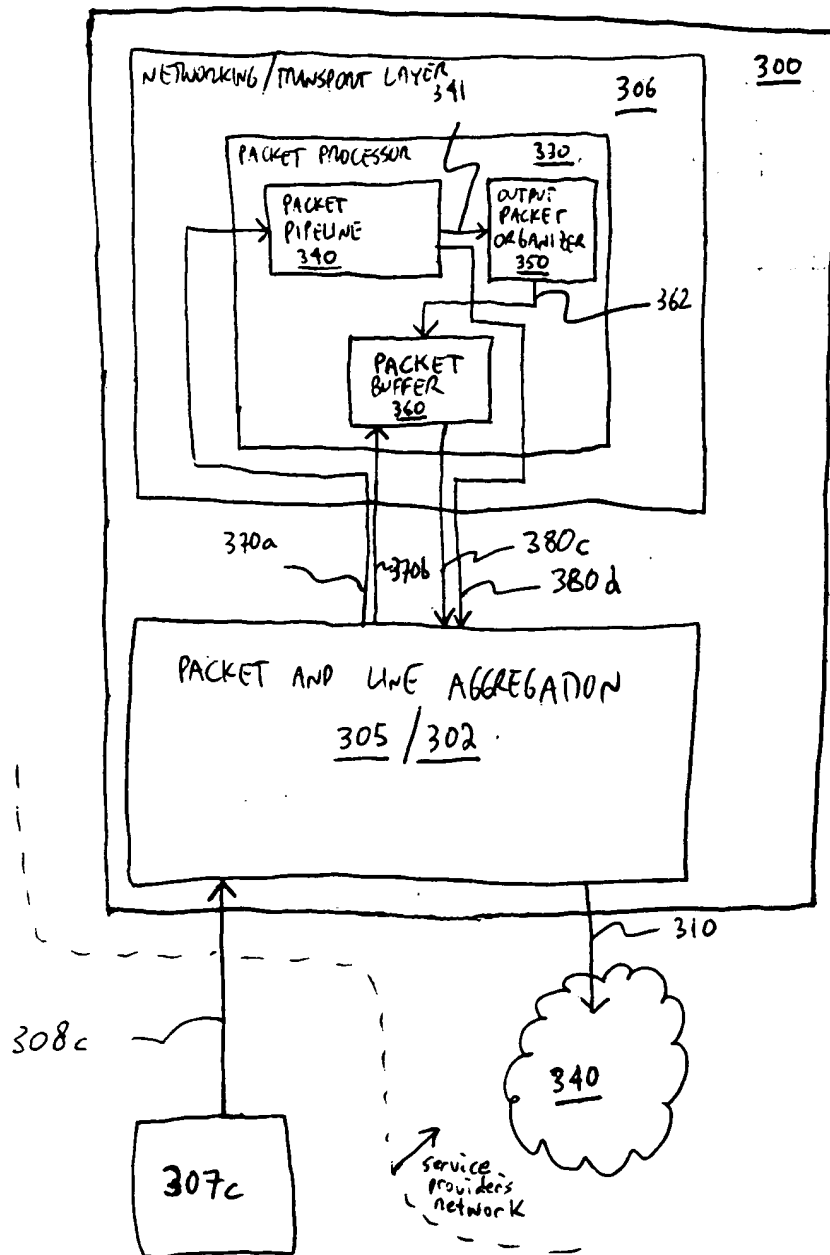 NETWORKING/TRANSPORT LAYER
341
306
300
PACKET PROCESSOR
330
PACKET
PIPELINE
340
OUTPUT
PACKET
ORGANIZER
350
362
PACKET
BUFFER
360
370a
370b
380c
380d
PACKET AND LINE AGGREGATION
305/302
310
308c
340
307c
service
providers
network